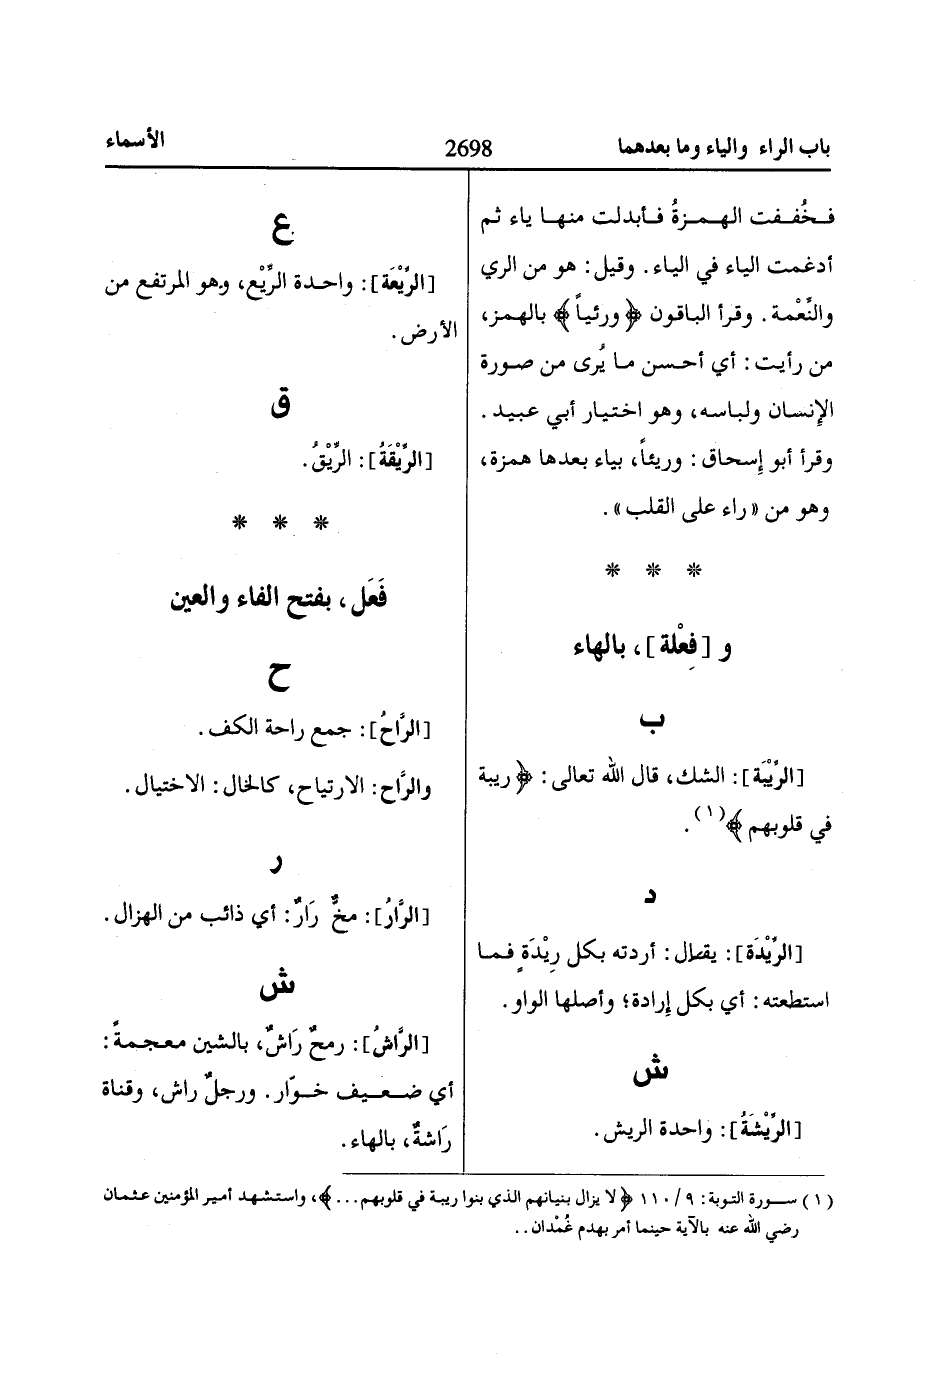 باب الراء والياء وما بعدهما
2698
الأسماء
فـخُفـفت الهـمـزةُ فـأبدلت منهـا ياء ثم
أدغمت الياء في الياء. وقيل: هو من الري
والنَّعْمة. وقرأ الباقون ﴿ ورئياً ﴾ بالهمز،
من رأيت: أي أحسن ما يُرى من صورة
الإنسان ولباسه، وهو اختيار أبي عبيد.
وقرأ أبو إسحاق: وريئاً، بياء بعدها همزة،
وهو من «راء على القلب».
* * *
و [فِعْلة]، بالهاء
ب
[الرِّيْبَة]: الشك، قال الله تعالى: ﴿ ريبة
في قلوبهم ﴾(١).
د
[الرِّيْدَة]: يقال: أردته بكل رِيْدَةٍ فمـا
استطعته: أي بكل إرادة؛ وأصلها الواو.
ش
[الرِّيْشَةُ]: واحدة الريش.
ع
[الرِّيْعَة]: واحدة الرِّيْع، وهو المرتفع من
الأرض.
ق
[الرِّيْقَةُ]: الرِّيْقُ.
* * *
فَعَل، بفتح الفاء والعين
ح
[الرَّاحُ]: جمع راحة الكف.
والرَّاح: الارتياح، كالخال: الاختيال.
ر
[الرَّارُ]: مخٌّ رَارٌ: أي ذائب من الهزال.
ش
[الرَّاشُ]: رمحٌ رَاشٌ، بالشين معـجمـةً:
أي ضـعـيف خـوّار. ورجلٌ راش، وقناة
رَاشةٌ، بالهاء.
(١) سـورة التوبة: ٩/ ١١٠ ﴿ لا يزال بنيانهم الذي بنوا ريبة في قلوبهم... ﴾، واستشهد أمير المؤمنين عثمان
رضي الله عنه بالآية حينما أمر بهدم غُمْدان..